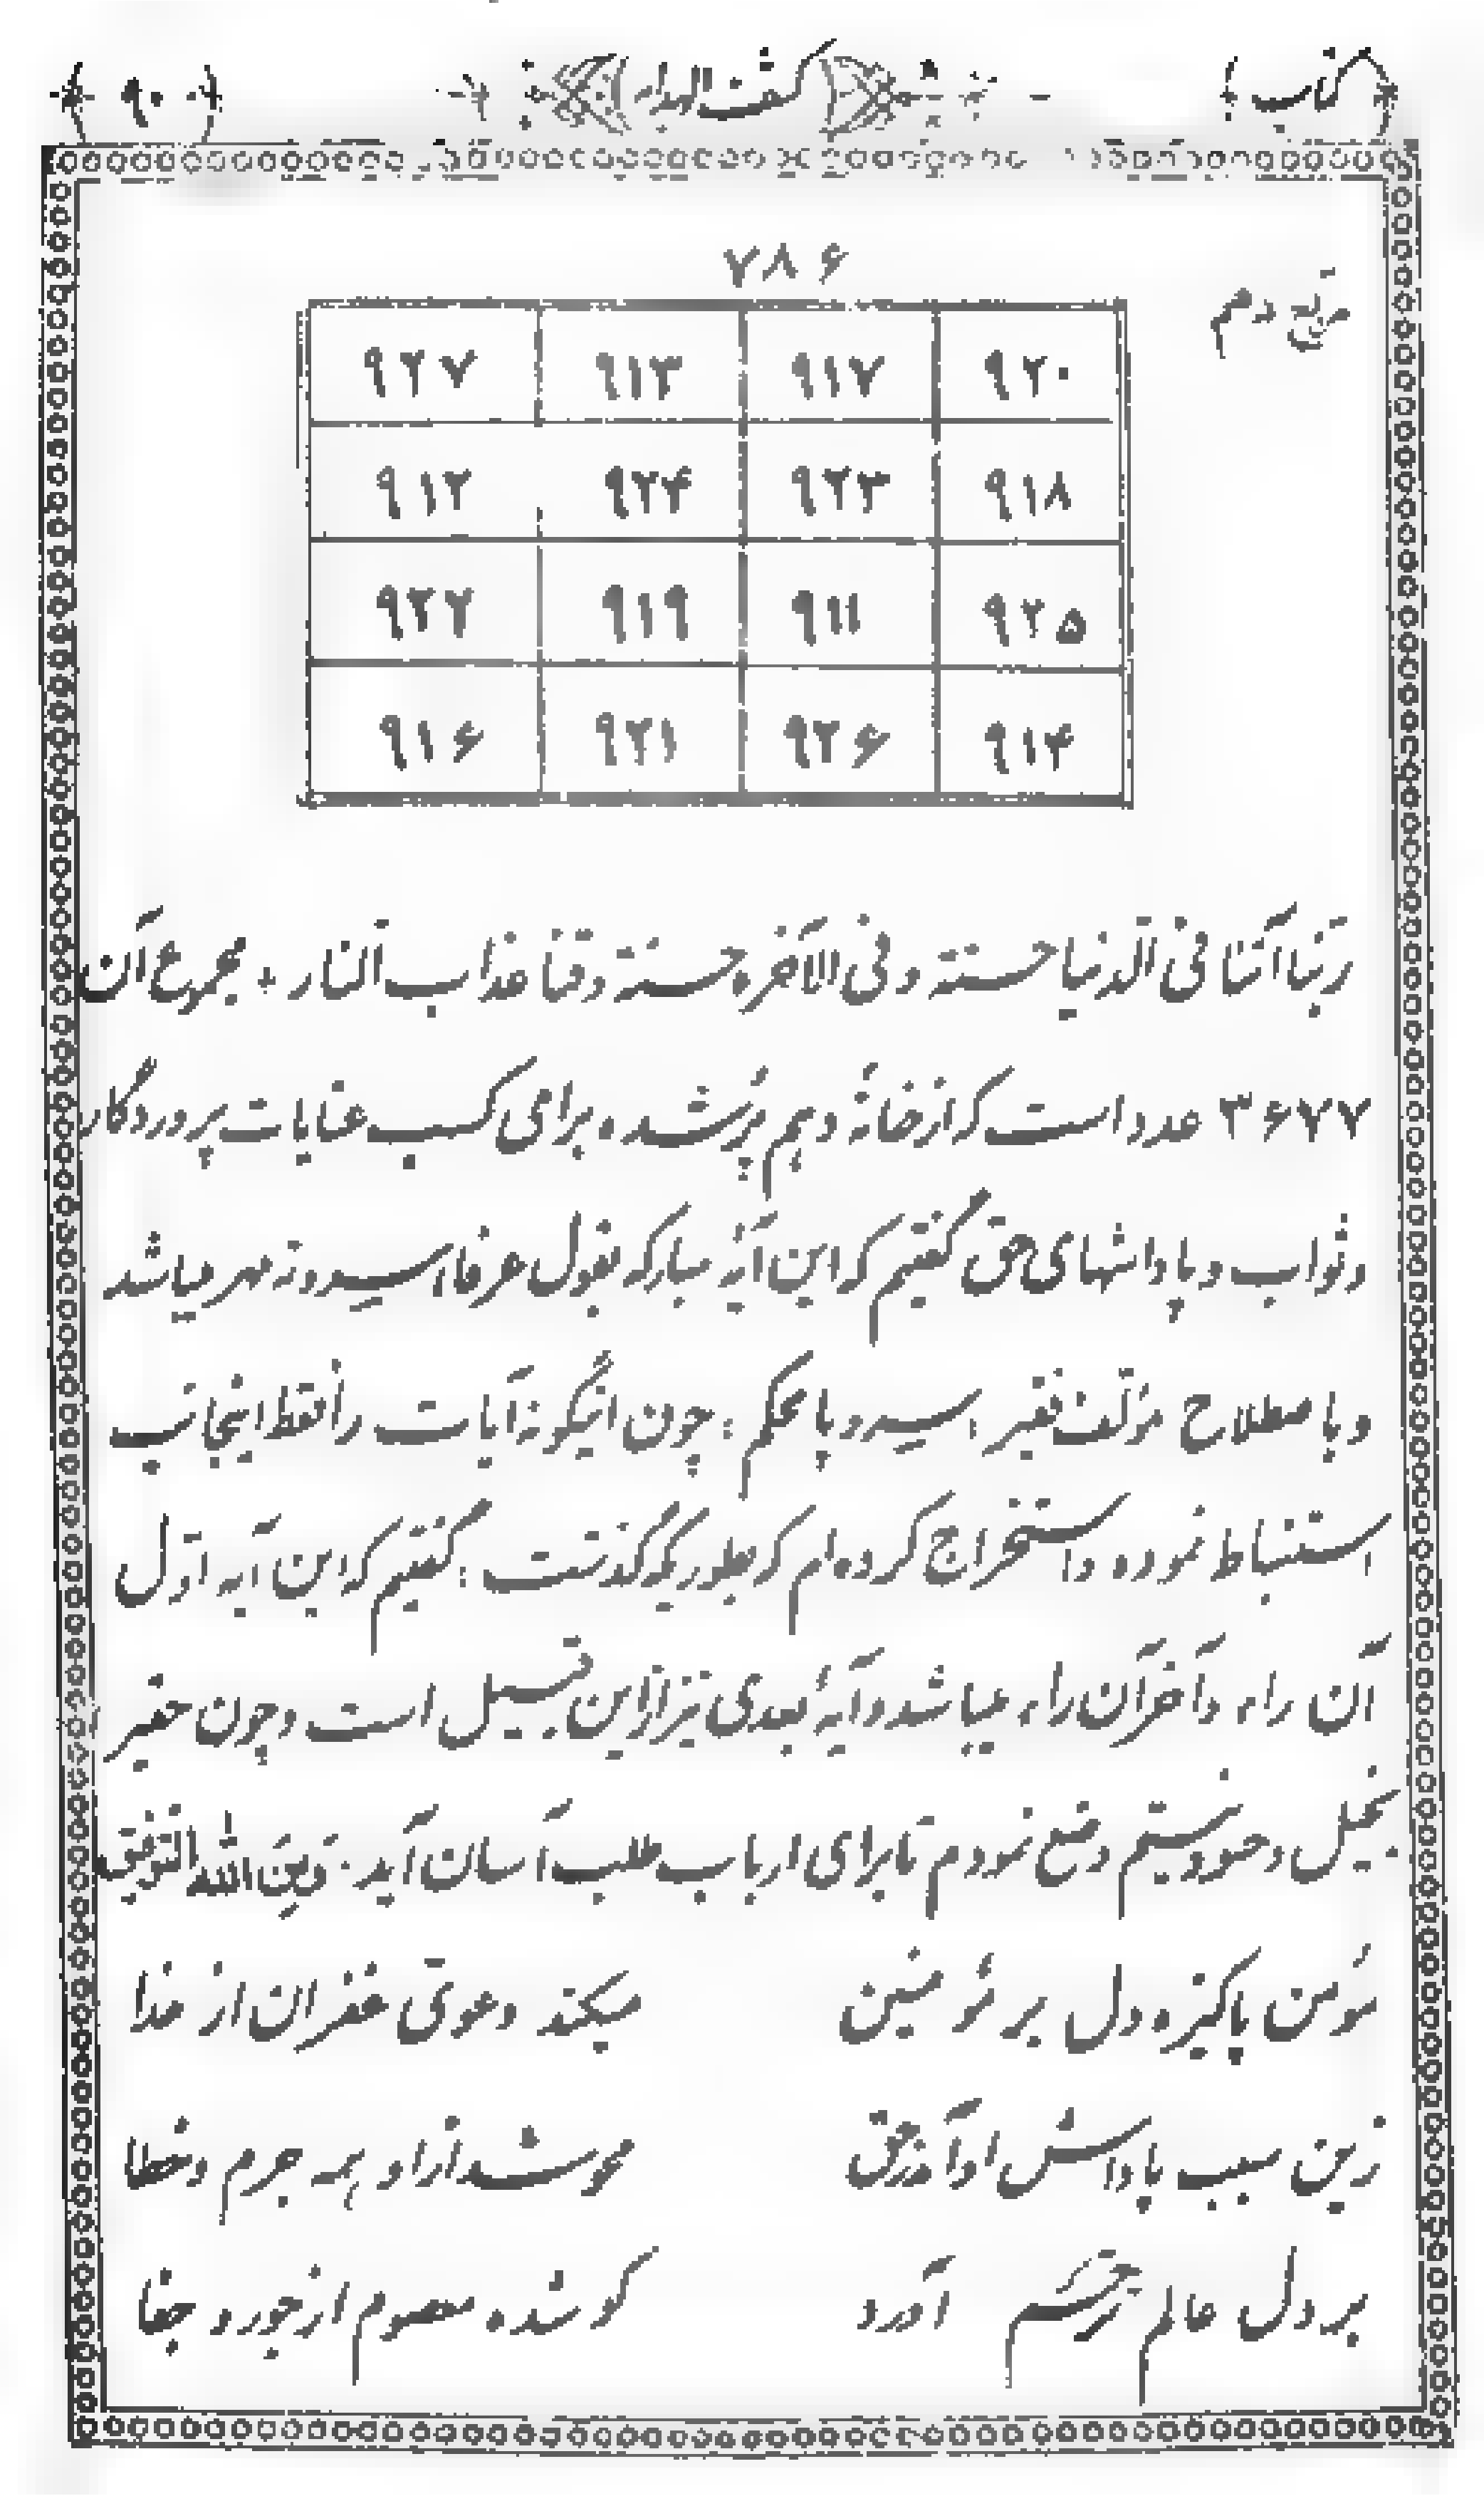 کتاب
کشف الهدایه
۹۰
۷۸۶
مربع دهم
۹۲۷ ۹۱۳ ۹۱۷ ۹۲۰
۹۱۲ ۹۲۴ ۹۲۳ ۹۱۸
۹۲۲ ۹۱۹ ۹۱۱ ۹۲۵
۹۱۶ ۹۲۱ ۹۲۶ ۹۱۴
ربّنا آتنا فی الّدنیا حسنته و فی الآخره حسنته وقنا عذاب النّار ، مجموع آن
۳۶۷۷ عدد است که از خانهٔ دهم پُر شده برای کسب عنایات پروردگار
و ثواب و پاداشهای حق گفتیم که این آیهٔ مبارکه بقول عرفاء، سیدونه مهر میباشد
و با صطلاح مؤلّف فقیر، محکم: چون اینگونه آیات را فقط اینجانب
استنباط نموده و استخراج کرده‌ام که بطوریکه گذشت: گفتیم که این آیه اوّل
آن راء و آخر آن راء میباشد و آیهٔ بعدی نیز از این قبیل است و چون حقیر
بخیل و حسود نیستم وضع نمودم تا برای ارباب طلب آسان آید. وَمِنَ الله التّوفیق
مؤمن پاکیزه دل بر مؤمنین میکند دعوی غفران از خدا
زین سبب پاداش او آمد ز حق محو شد از او همه جرم و خطا
بر دل عالم ترحّم آورد کو شده معصوم از جور و جفا